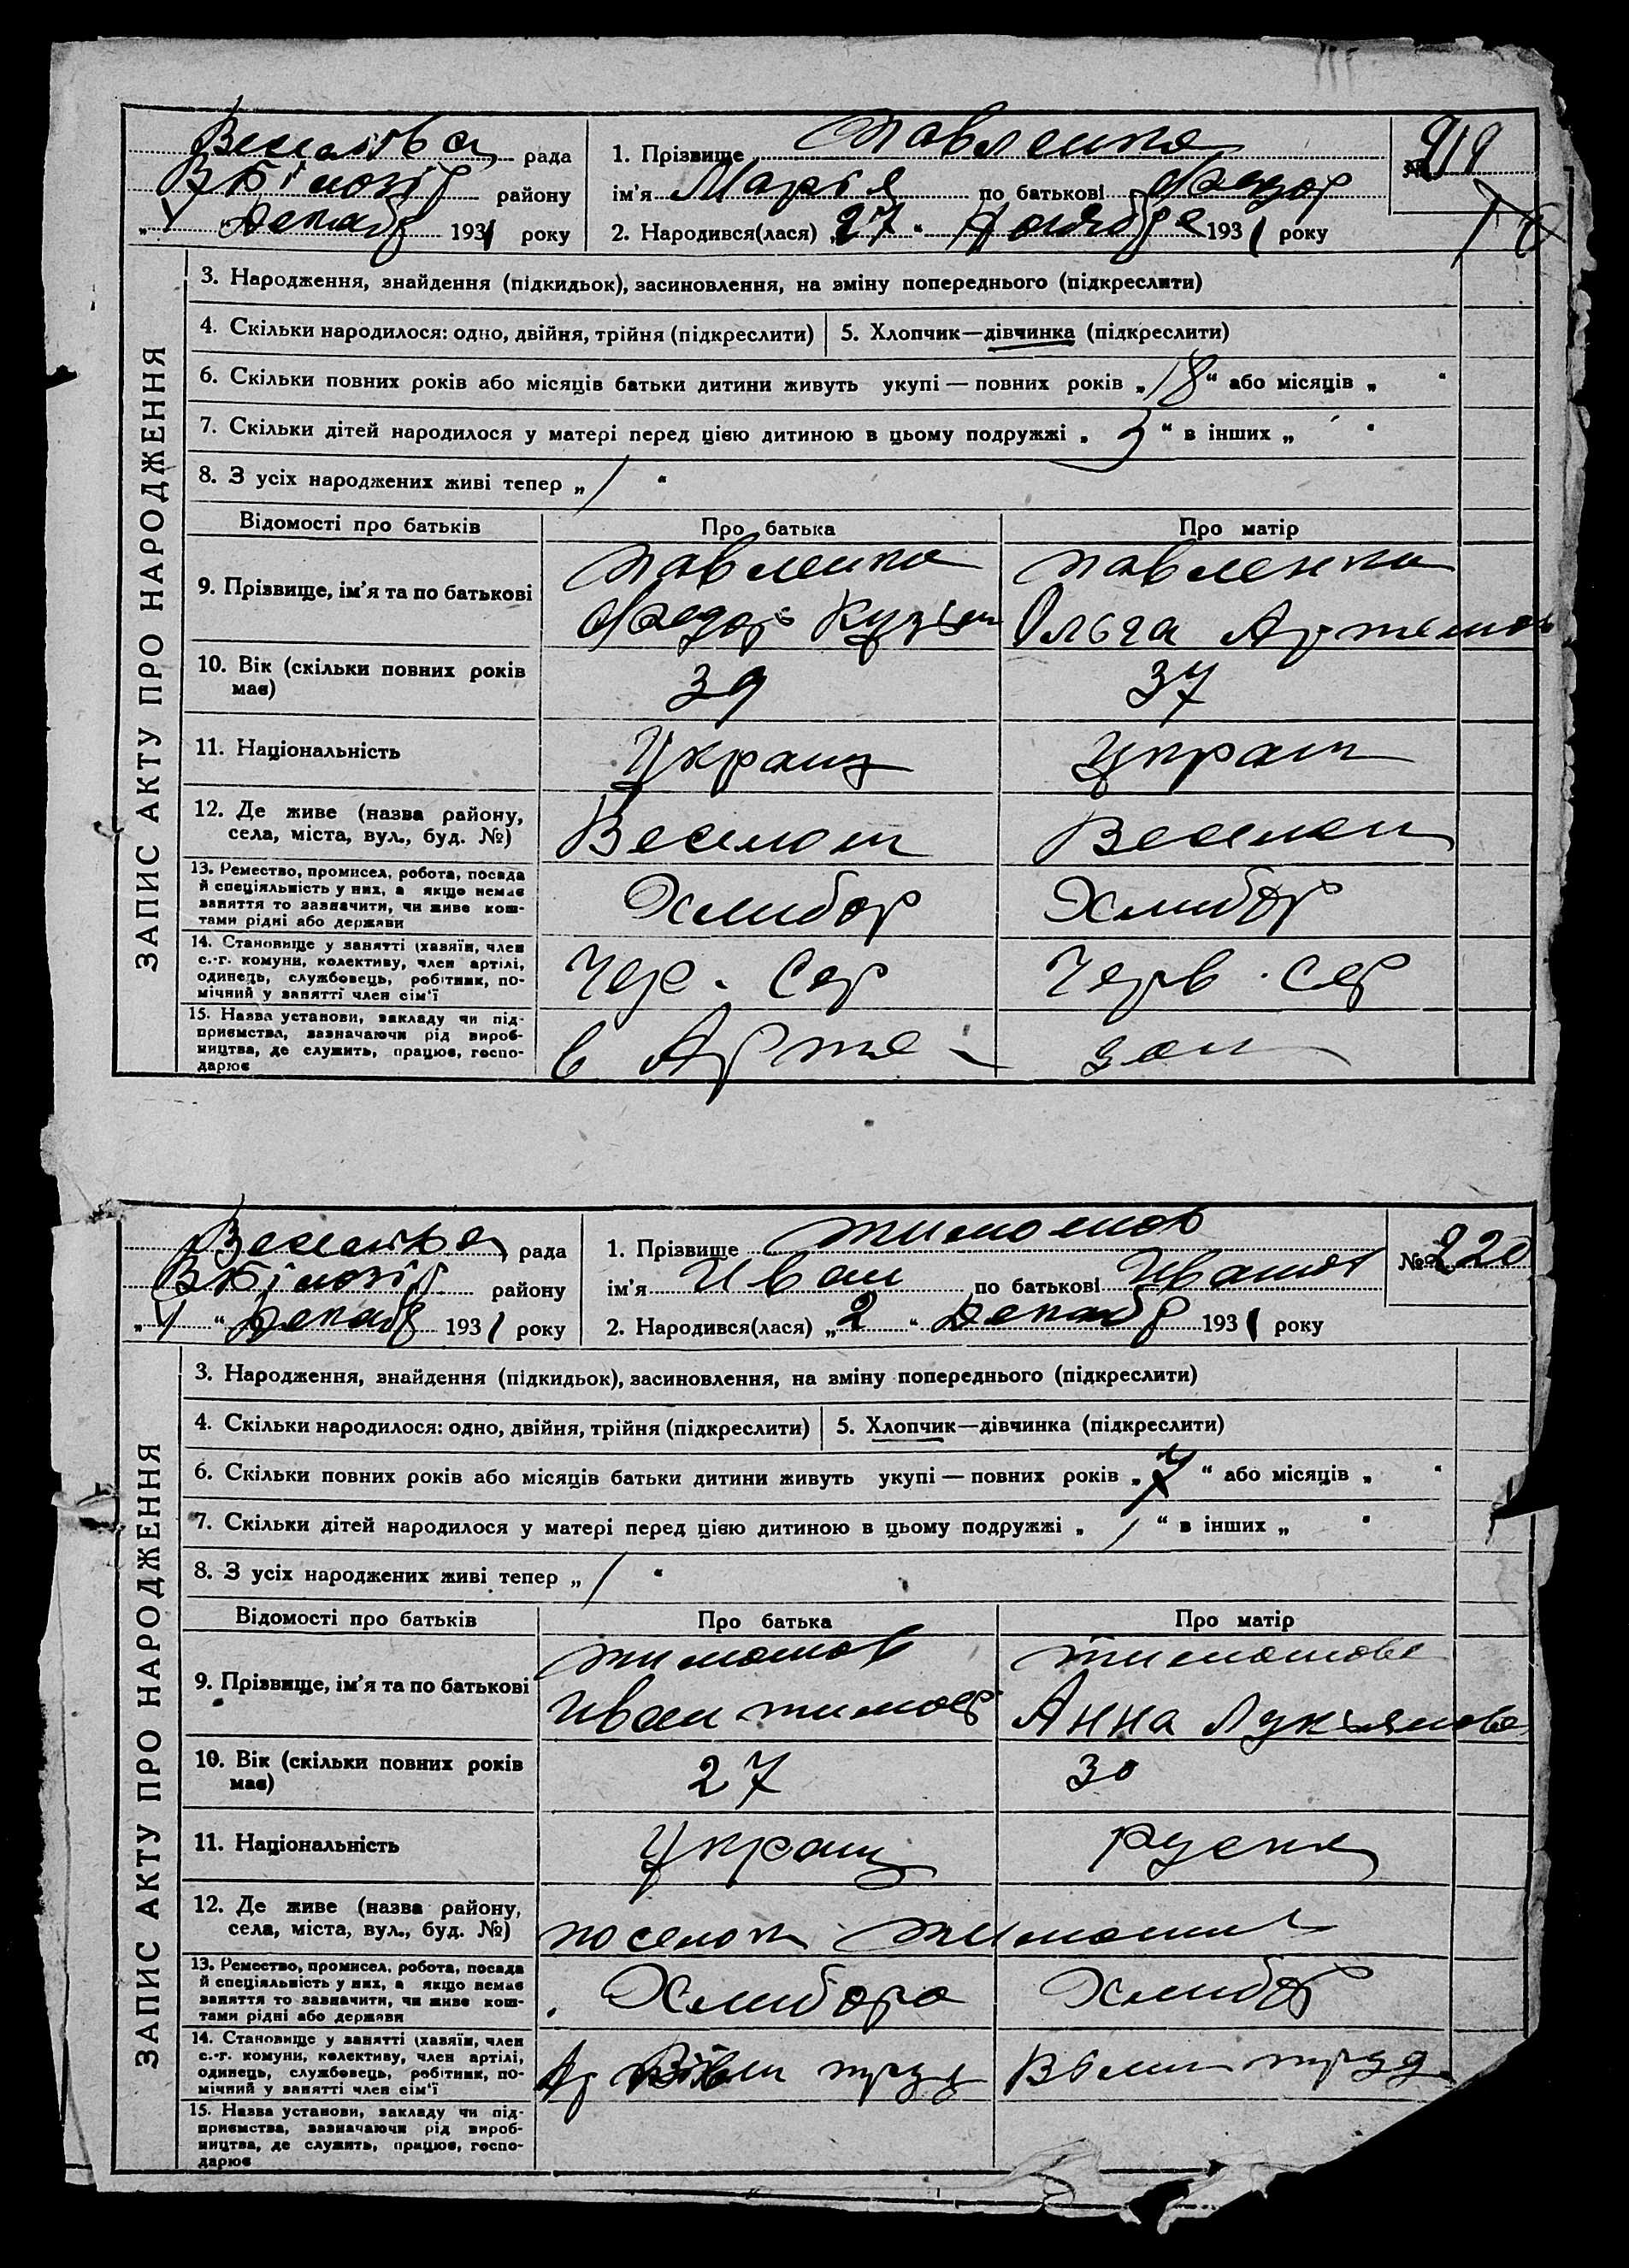 рада
району
193 1 року
1. Прізвище Павленко
ім'я Марья по батькові Федор
2. Народився(лася) „27“ Ноября 1931 року
№ 219
ЗАПИС АКТУ ПРО НАРОДЖЕННЯ
3. Народження, знайдення (підкидьок), засиновлення, на зміну попереднього (підкреслити)
4. Скільки народилося: одно, двійня, трійня (підкреслити)
5. Хлопчик—дівчинка (підкреслити)
6. Скільки повних років або місяців батьки дитини живуть укупі — повних років „18“ або місяців „ “
7. Скільки дітей народилося у матері перед цією дитиною в цьому подружжі „3“ в інших „ “
8. З усіх народжених живі тепер „ “
Відомості про батьків
Про батька
Про матір
9. Прізвище, ім'я та по батькові
Павленко
Федор Кузьм
Павленко
Ольга Артемов
10. Вік (скільки повних років має)
39
37
11. Національність
Украин
Украин
12. Де живе (назва району, села, міста, вул., буд. №)
13. Ремество, промисел, робота, посада й спеціяльність у них, а якщо немає заняття то зазначити, чи живе коштами рідні або держави
Хлибор
Хлибор
14. Становище у занятті (хазяїн, член с.-г. комуни, колективу, член артілі, одинець, службовець, робітник, помічний у занятті член сім'ї
Чер. Сер
Черв. Сер
15. Назва установи, закладу чи підприємства, зазначаючи рід виробництва, де служить, працює, господарює
в Арте-
рада
району
„4“ Декабр 1931 року
1. Прізвище Тимошов
ім'я Иван по батькові Иванов
2. Народився(лася) „2“ Декабр 1931 року
№ 220
ЗАПИС АКТУ ПРО НАРОДЖЕННЯ
3. Народження, знайдення (підкидьок), засиновлення, на зміну попереднього (підкреслити)
4. Скільки народилося: одно, двійня, трійня (підкреслити)
5. Хлопчик—дівчинка (підкреслити)
6. Скільки повних років або місяців батьки дитини живуть укупі — повних років „7“ або місяців „ “
7. Скільки дітей народилося у матері перед цією дитиною в цьому подружжі „1“ в інших „ “
8. З усіх народжених живі тепер „1“
Відомості про батьків
Про батька
Про матір
9. Прізвище, ім'я та по батькові
Тимошов
Иван Тимоф
Тимошова
Анна Лукьянова
10. Вік (скільки повних років має)
27
30
11. Національність
Украин
Руска
12. Де живе (назва району, села, міста, вул., буд. №)
поселок
13. Ремество, промисел, робота, посада й спеціяльність у них, а якщо немає заняття то зазначити, чи живе коштами рідні або держави
Хлибора
Хлибор
14. Становище у занятті (хазяїн, член с.-г. комуни, колективу, член артілі, одинець, службовець, робітник, помічний у занятті член сім'ї
Ар труд
труд
15. Назва установи, закладу чи підприємства, зазначаючи рід виробництва, де служить, працює, господарює